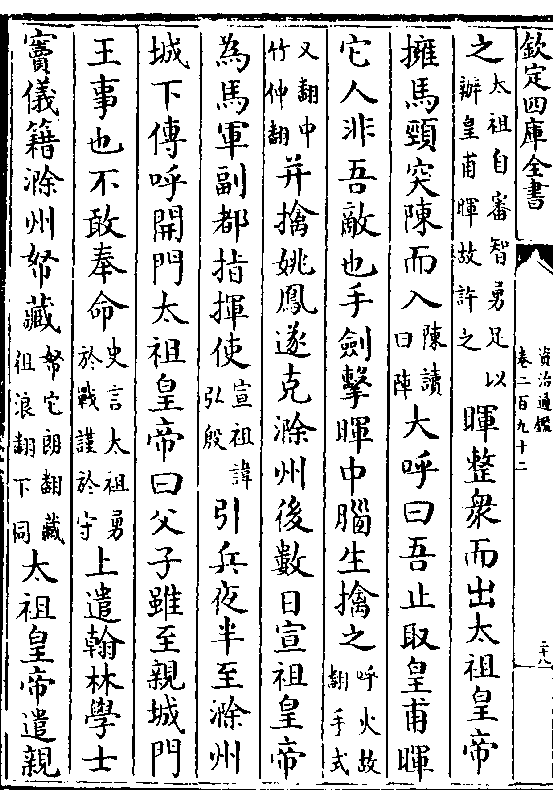 欽定四庫全書
資治通鑑
卷二百九十二
二十八
之太祖自審智勇足以辦皇甫暉故許之暉整衆而出太祖皇帝
擁馬頸突陳而入陳讀曰陣大呼曰吾止取皇甫暉
它人非吾敵也手劍擊暉中腦生擒之呼火故翻手式
又翻中竹仲翻并擒姚鳳遂克滁州後數日宣祖皇帝
為馬軍副都指揮使宣祖諱弘殷引兵夜半至滁州
城下傳呼開門太祖皇帝曰父子雖至親城門
王事也不敢奉命史言太祖勇於戰謹於守上遣翰林學士
竇儀籍滁州帑藏帑它朗翻藏徂浪翻下同太祖皇帝遣親